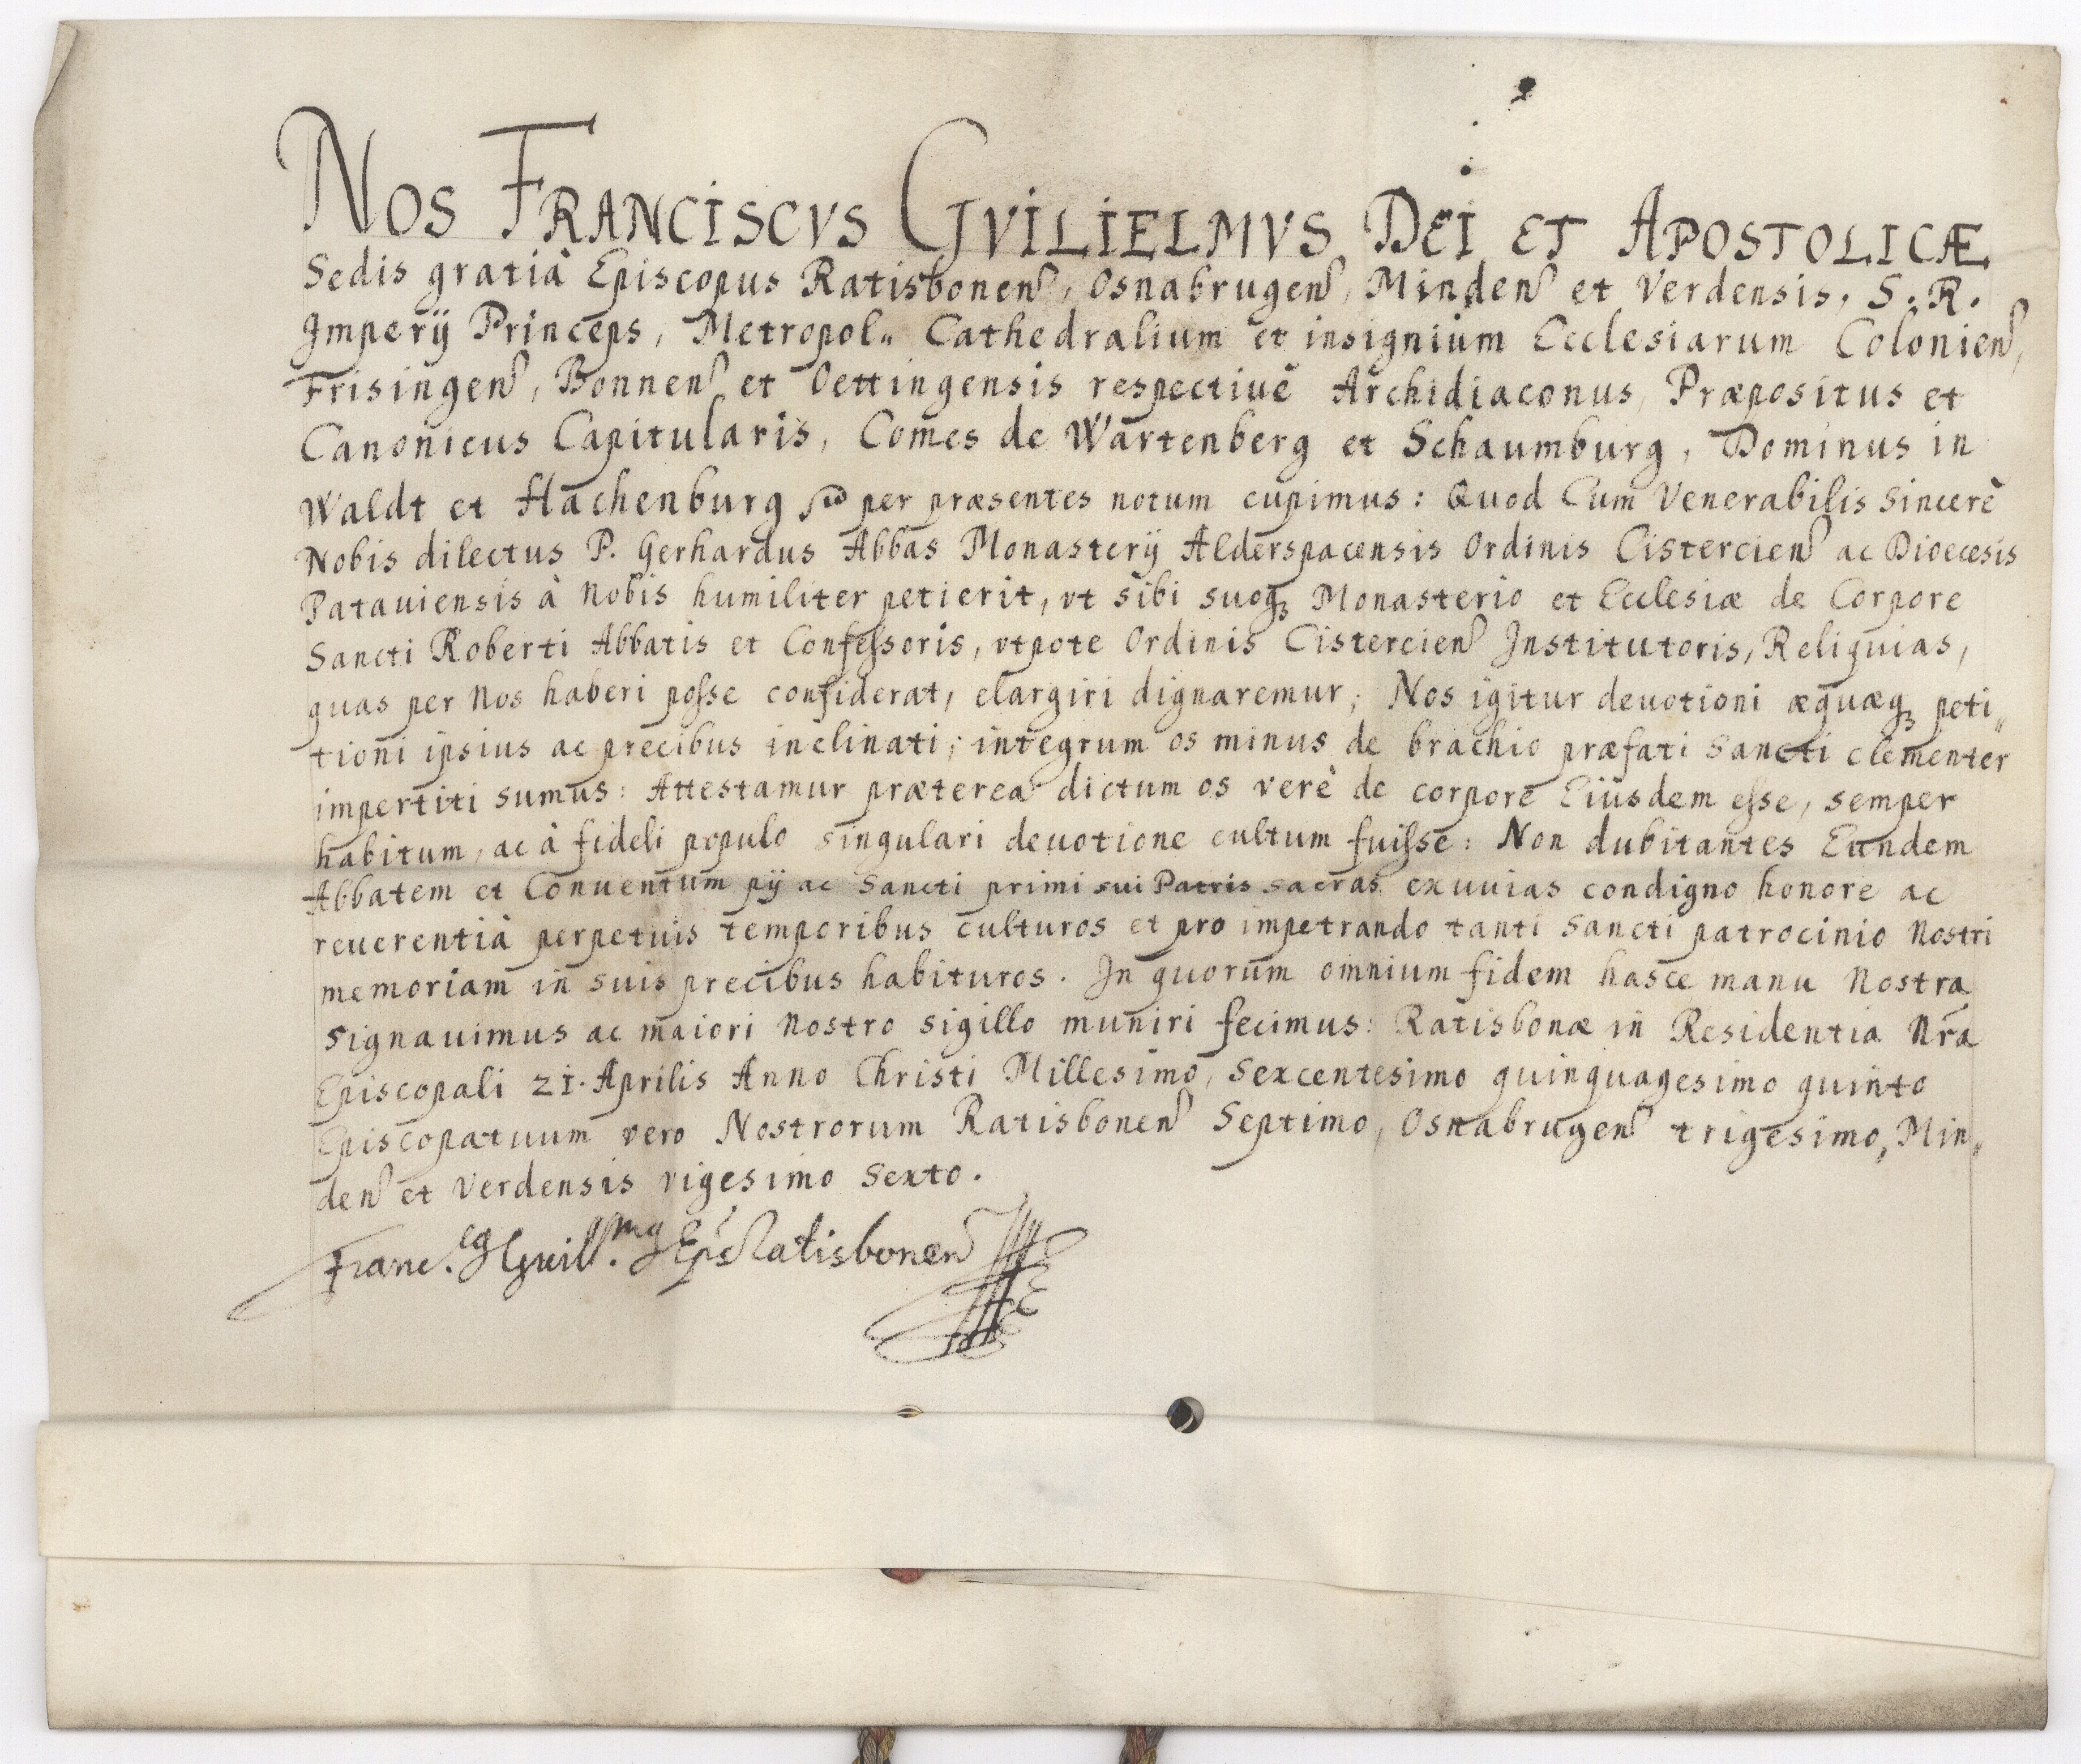 NOS FRANCISCVS GVILIELMVS DEI ET APOSTOLICÆ
Sedis gratiâ Episcopus Ratisbonen, Osnabrugen, Minden et Verdensis, S. R.
Imperÿ Princeps, Metropol„ Cathedralium et insignium Ecclesiarum Colonien,
Frisingen, Bonnen et Oettingensis respectiuè Archidiaconus, Præpositus et
Canonicus Capitularis, Comes de Wartenberg et Schaumburg, Dominus in
Waldt et Hachenburg per præsentes notum cupimus: Quod Cum Venerabilis Sincerè
Nobis dilectus P. Gerhardus Abbas Monasterÿ Alderspacensis Ordinis Cistercien ac Diœcesis
Patauiensis à Nobis humiliter petierit, vt sibi suoqꝫ Monasterio et Ecclesiæ de Corpore
Sancti Roberti Abbatis et Confeſsoris, vtpote Ordinis Cistercien Institutoris, Reliquias,
quas per Nos haberi poſse confiderat, elargiri dignaremur; Nos igitur deuotioni æquæqꝫ peti„
tioni ipsius ac precibus inclinati, integrum os minus de brachio præfati Sancti clementer
impertiti sumus: Attestamur præterea dictum os verè de corpore Eiusdem eſse, semper
habitum, ac à fideli populo singulari deuotione cultum fuiſse: Non dubitantes Eundem
Abbatem et Conuentum pÿ ac Sancti primi sui Patris sacras exuuias condigno honore ac
reuerentiâ perpetuis temporibus culturos et pro impetrando tanti Sancti patrocinio Nostri
memoriam in suis precibus habituros. In quorum omnium fidem hasce manu Nostra
signauimus ac maiori Nostro sigillo muniri fecimus: Ratisbonæ in Residentia Nr̃a
Episcopali 21. Aprilis Anno Christi Millesimo, Sexcentesimo quinquagesimo quinto
Episcopatuum vero Nostrorum Ratisbonen Septimo, Osnabrugen trigesimo, Min„
den et Verdensis vigesimo Sexto.
Franc.cꝯ Guill.mꝯ Ep̃s Ratisbonen